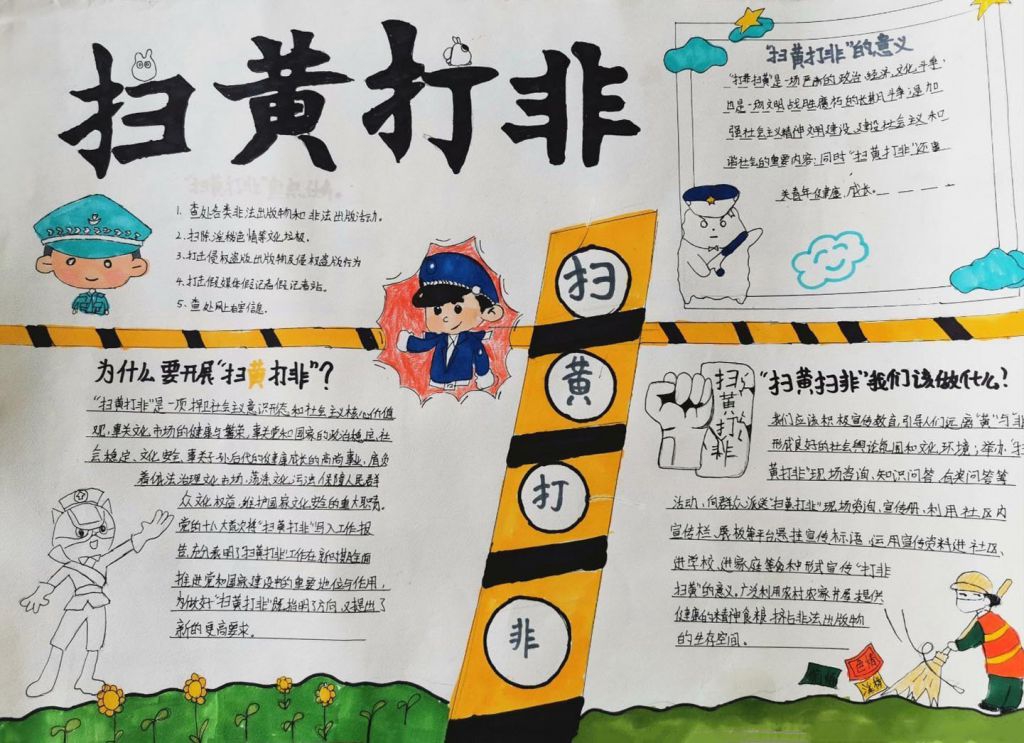 扫黄打非
1. 查处各类非法出版物和非法出版活动。
2. 扫除淫秽色情等文化垃圾。
3. 打击侵权盗版出版物及侵权盗版行为
4. 打击假媒体假记者假记者站。
5. 查处网上有害信息。
"扫黄打非"的意义
"打非扫黄"是一场严肃的政治、经济、文化斗争,
也是一场文明战胜腐朽的长期斗争;是加
强社会主义精神文明建设、建设社会主义和
谐社会的重要内容;同时"扫黄打非"还事
关青年健康成长。
扫
黄
打
非
为什么要开展"扫黄打非"?
"扫黄打非"是一项捍卫社会主义意识形态和社会主义核心价值
观,事关文化市场的健康与繁荣,事关党和国家的政治稳定,社
会稳定、文化安全,事关子孙后代的健康成长的高尚事业,肩负
着依法治理文化市场,荡涤文化污浊,保障人民群
众文化权益,维护国家文化安全的重大职责。
党的十八大首次将"扫黄打非"写入工作报
告,充分表明了"扫黄打非"工作在新全面
推进党和国家建设中的重要地位与作用,
为做好"扫黄打非"既指明了方向,又提出了
新的更高要求。
扫黄打非
"扫黄扫非"我们该做什么?
我们应该积极宣传教育,引导人们远离"黄"与"非
形成良好的社会舆论氛围和文化环境;举办"扫
黄打非"现场咨询、知识问答、有奖问答等
活动,向群众派送"扫黄打非"现场资询,宣传册,利用社区内
宣传栏、展板等平台悬挂宣传标语,运用宣传资料进社区、
进学校、进家庭等多种形式宣传"打非
扫黄"的意义。广泛利用农村农家书屋提供
健康的精神食粮,挤占非法出版物
的生存空间。
色情